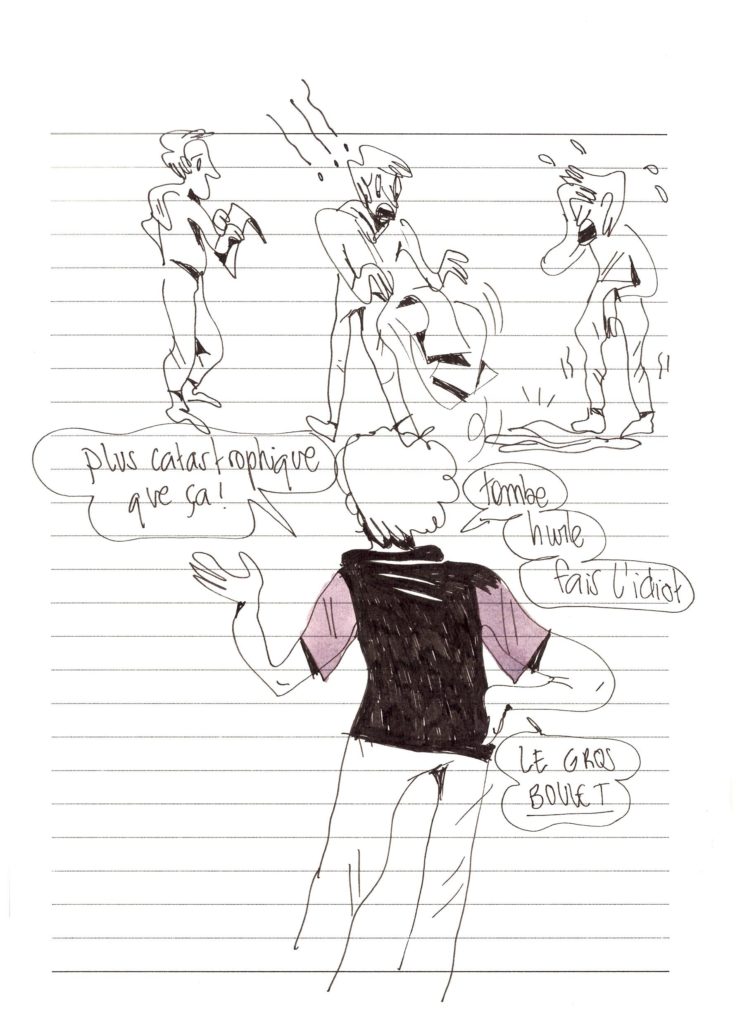 plus catastrophique
que ça!
tombe
hurle
fais l'idiot
LE GROS
BOULET